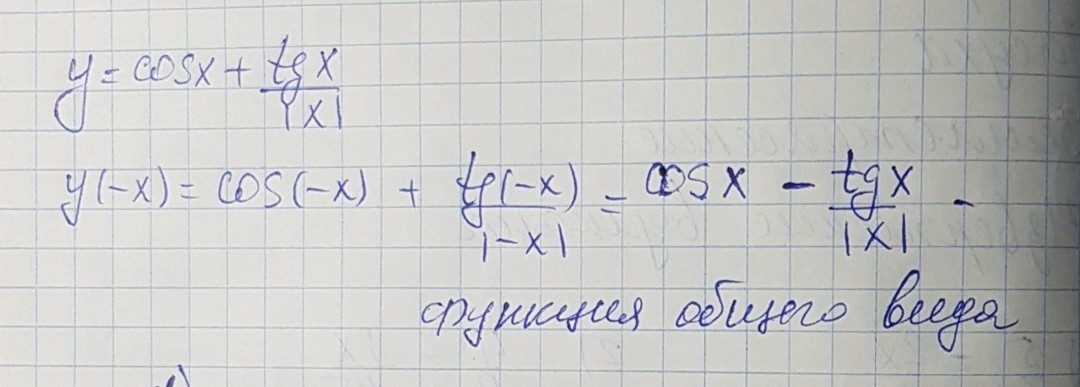 y = cosx + tg x / |x|
y(-x) = cos(-x) + tg(-x) / |-x| = cos x - tg x / |x| -
функция общего вида